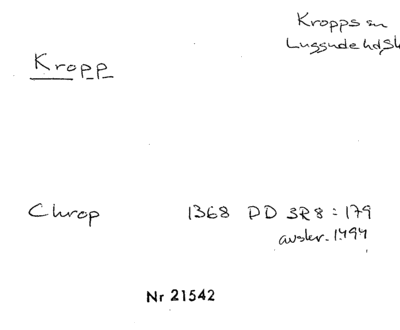 Kropps sn
Luggude hd Sk
Kropp
Chrop 1368 DD 3R8:179
avskr. 1494
Nr 21542